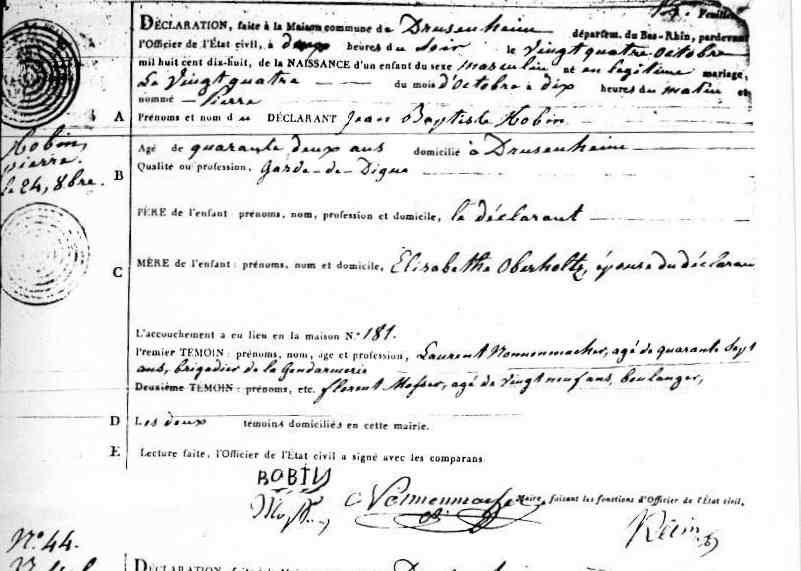 Feuillet
DÉCLARATION, faite à la Maison commune de Drusenheim
départem. du Bas-Rhin, pardevant
l'Officier de l'État civil, à deux heures du soir le vingt quatre octobre
mil huit cent dix-huit, de la NAISSANCE d'un enfant du sexe masculin né en légitime mariage,
Le vingt quatre du mois d'Octobre à dix heures du matin et
nommé Pierre
A Prénoms et nom du DÉCLARANT Jean Baptiste Hobin
Hobin,
pierre.
le 24, 8bre.
B
Agé de quarante deux ans domicilié à Drusenheim
Qualité ou profession, Garde-de-Digue
PÈRE de l'enfant: prénoms, nom, profession et domicile, le déclarant
C MÈRE de l'enfant: prénoms, nom et domicile, Elisabethe Oberholtz, épouse du déclaran
L'accouchement a eu lieu en la maison N.º 181.
Premier TÉMOIN: prénoms, nom, age et profession, Laurent Nonnenmacher, agé de quarante Sept
ans, brigadier de la Gendarmerie
Deuxième TÉMOIN: prénoms, etc. florent Mosser, agé de vingt neuf ans, boulanger,
D Les deux témoins domiciliés en cette mairie.
E Lecture faite, l'Officier de l'État civil a signé avec les comparans.
Maire, faisant les fonctions d'Officier de l'État civil,
N.º 44.
DÉCLARATION, faite à la Maison commune de Drusenheim